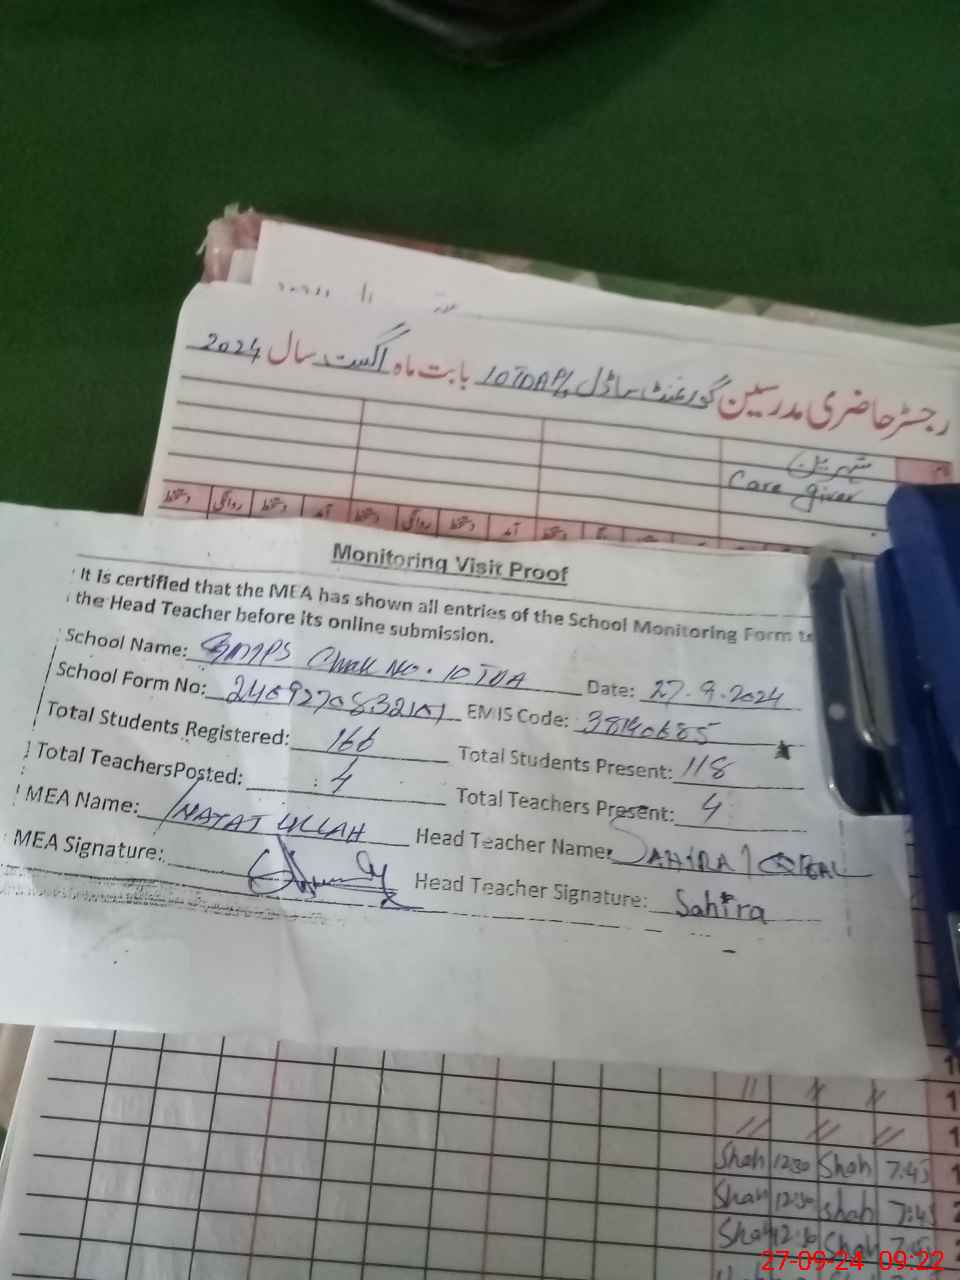 رجسٹر حاضری مدرسین گورنمنٹ ماڈل 10TDA بابت ماہ اگست سال 2024
نام
Care giver
دستخط روانگی دستخط آمد دستخط روانگی دستخط آمد دستخط
Monitoring Visit Proof
It is certified that the MEA has shown all entries of the School Monitoring Form to
the Head Teacher before its online submission.
School Name: GMMPS Chak No. 10 TDA Date: 27.9.2024
School Form No: EMIS Code: 38140685
Total Students Registered: 166 Total Students Present: 118
Total TeachersPosted: 4 Total Teachers Present: 4
MEA Name: INAYAT ULLAH Head Teacher Name: SAHIRA
MEA Signature: Head Teacher Signature: Sahira
Shah 12:30 Shah 7:45
Shah 12:30 Shah 7:45
Shah 12:30 Shah
27-09-24 09:22